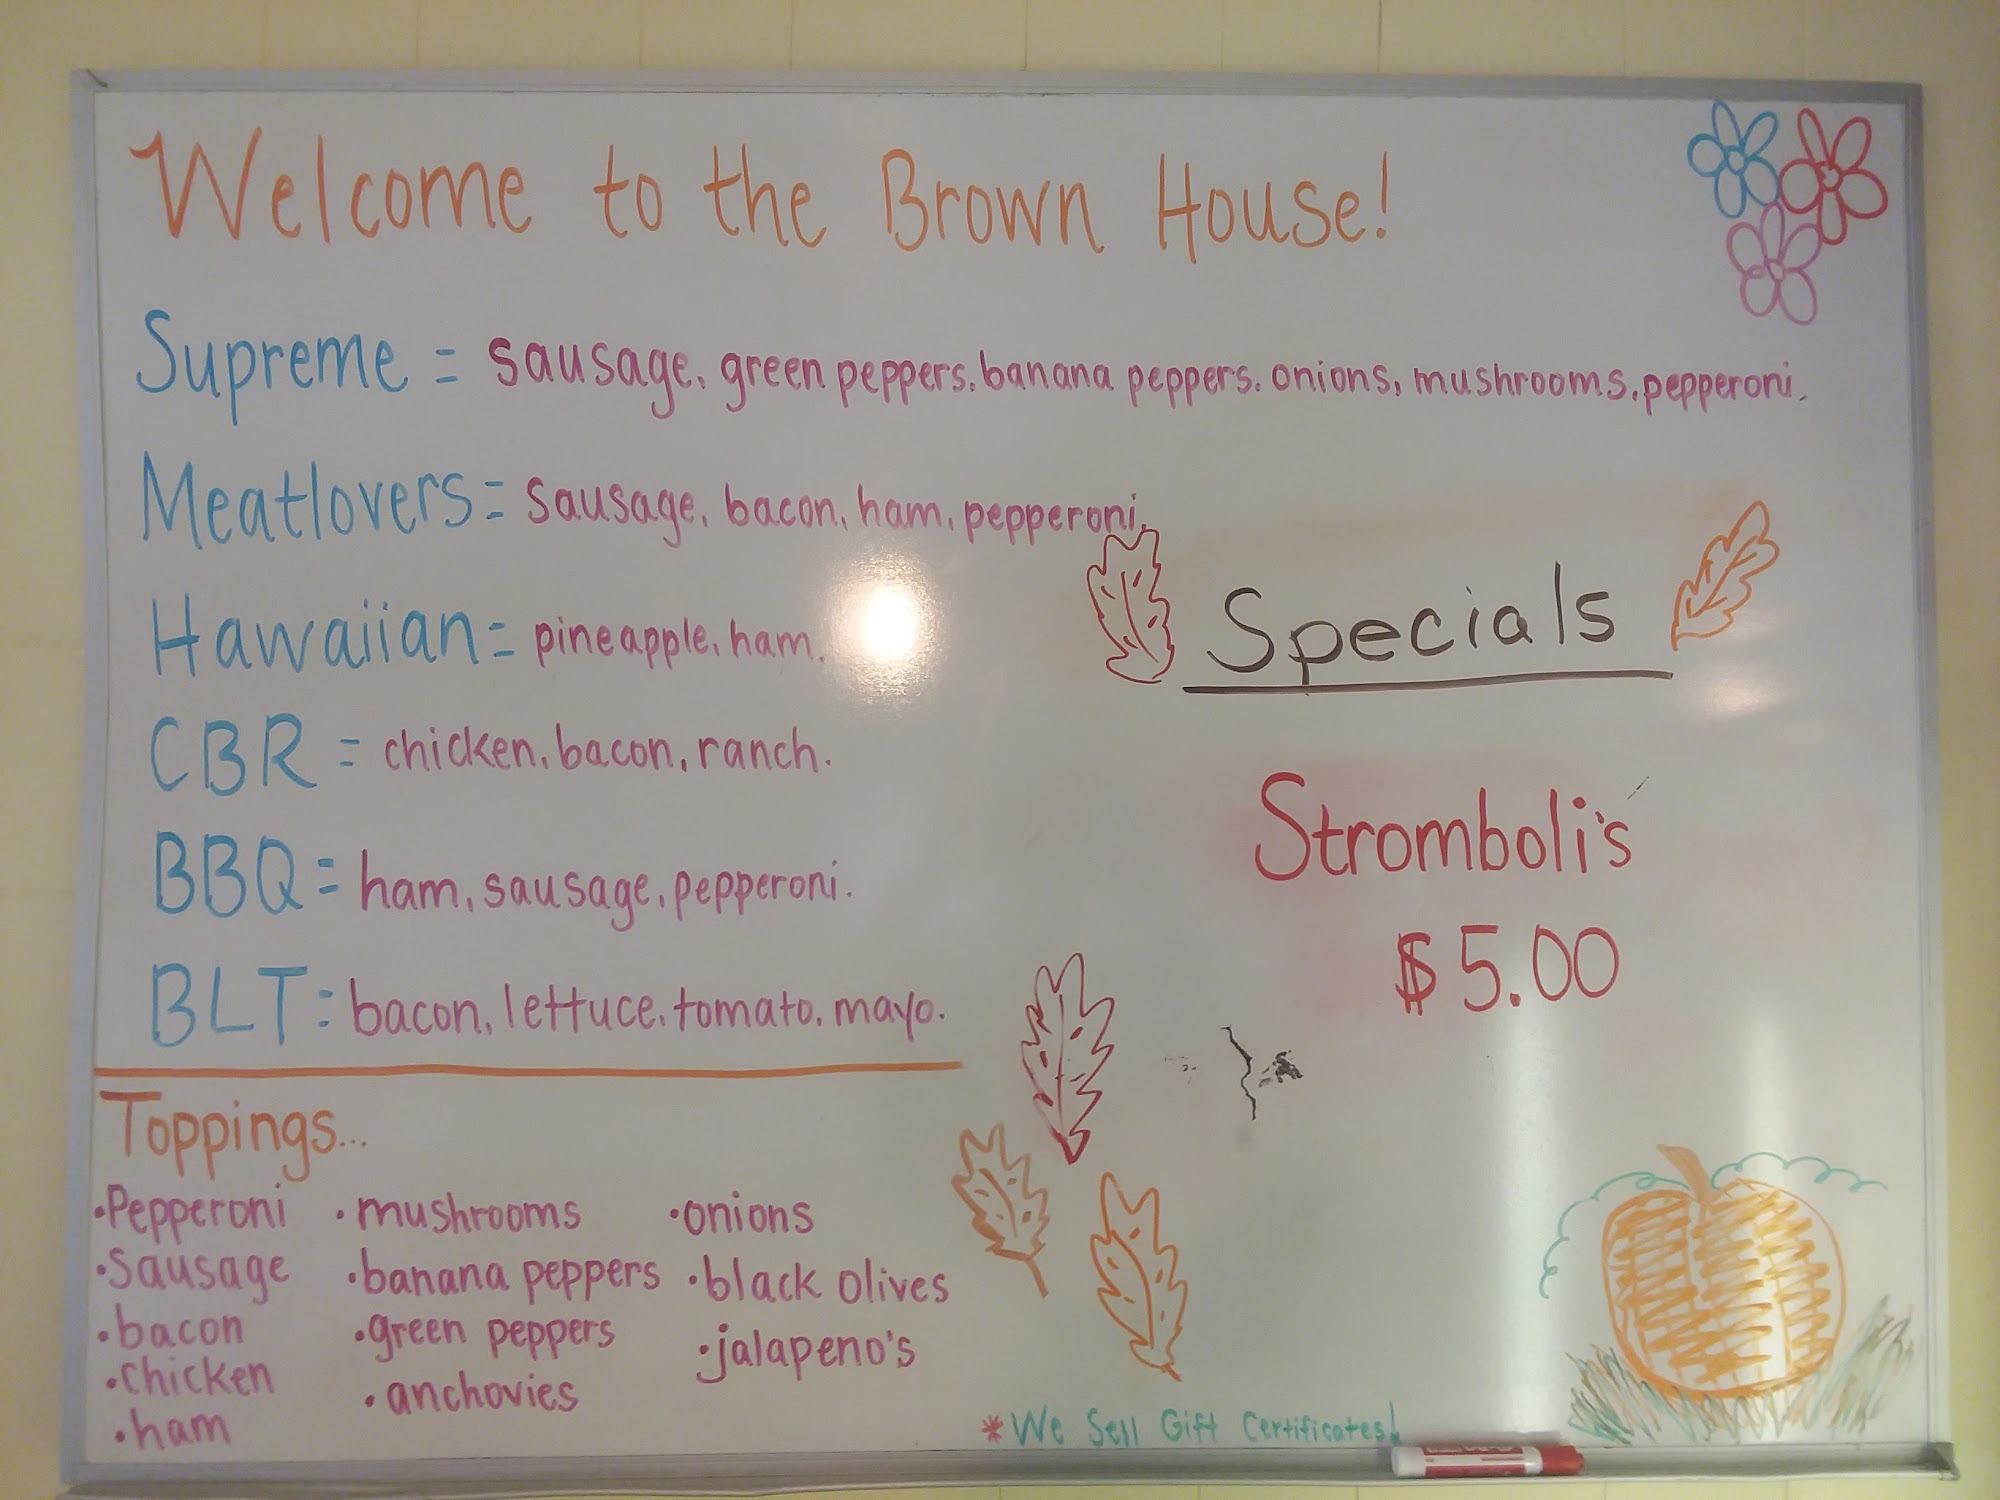 Welcome to the Brown House!
Supreme = sausage, green peppers, banana peppers, onions, mushrooms, pepperoni.
Meatlovers = sausage, bacon, ham, pepperoni.
Hawaiian = pineapple, ham.
CBR = chicken, bacon, ranch.
BBQ = ham, sausage, pepperoni.
BLT = bacon, lettuce, tomato, mayo.
Specials
Stromboli's
$5.00
Toppings...
•Pepperoni
•Sausage
•bacon
•chicken
•ham
•mushrooms
•banana peppers
•green peppers
•anchovies
•onions
•black olives
•jalapeno's
*We Sell Gift Certificates!